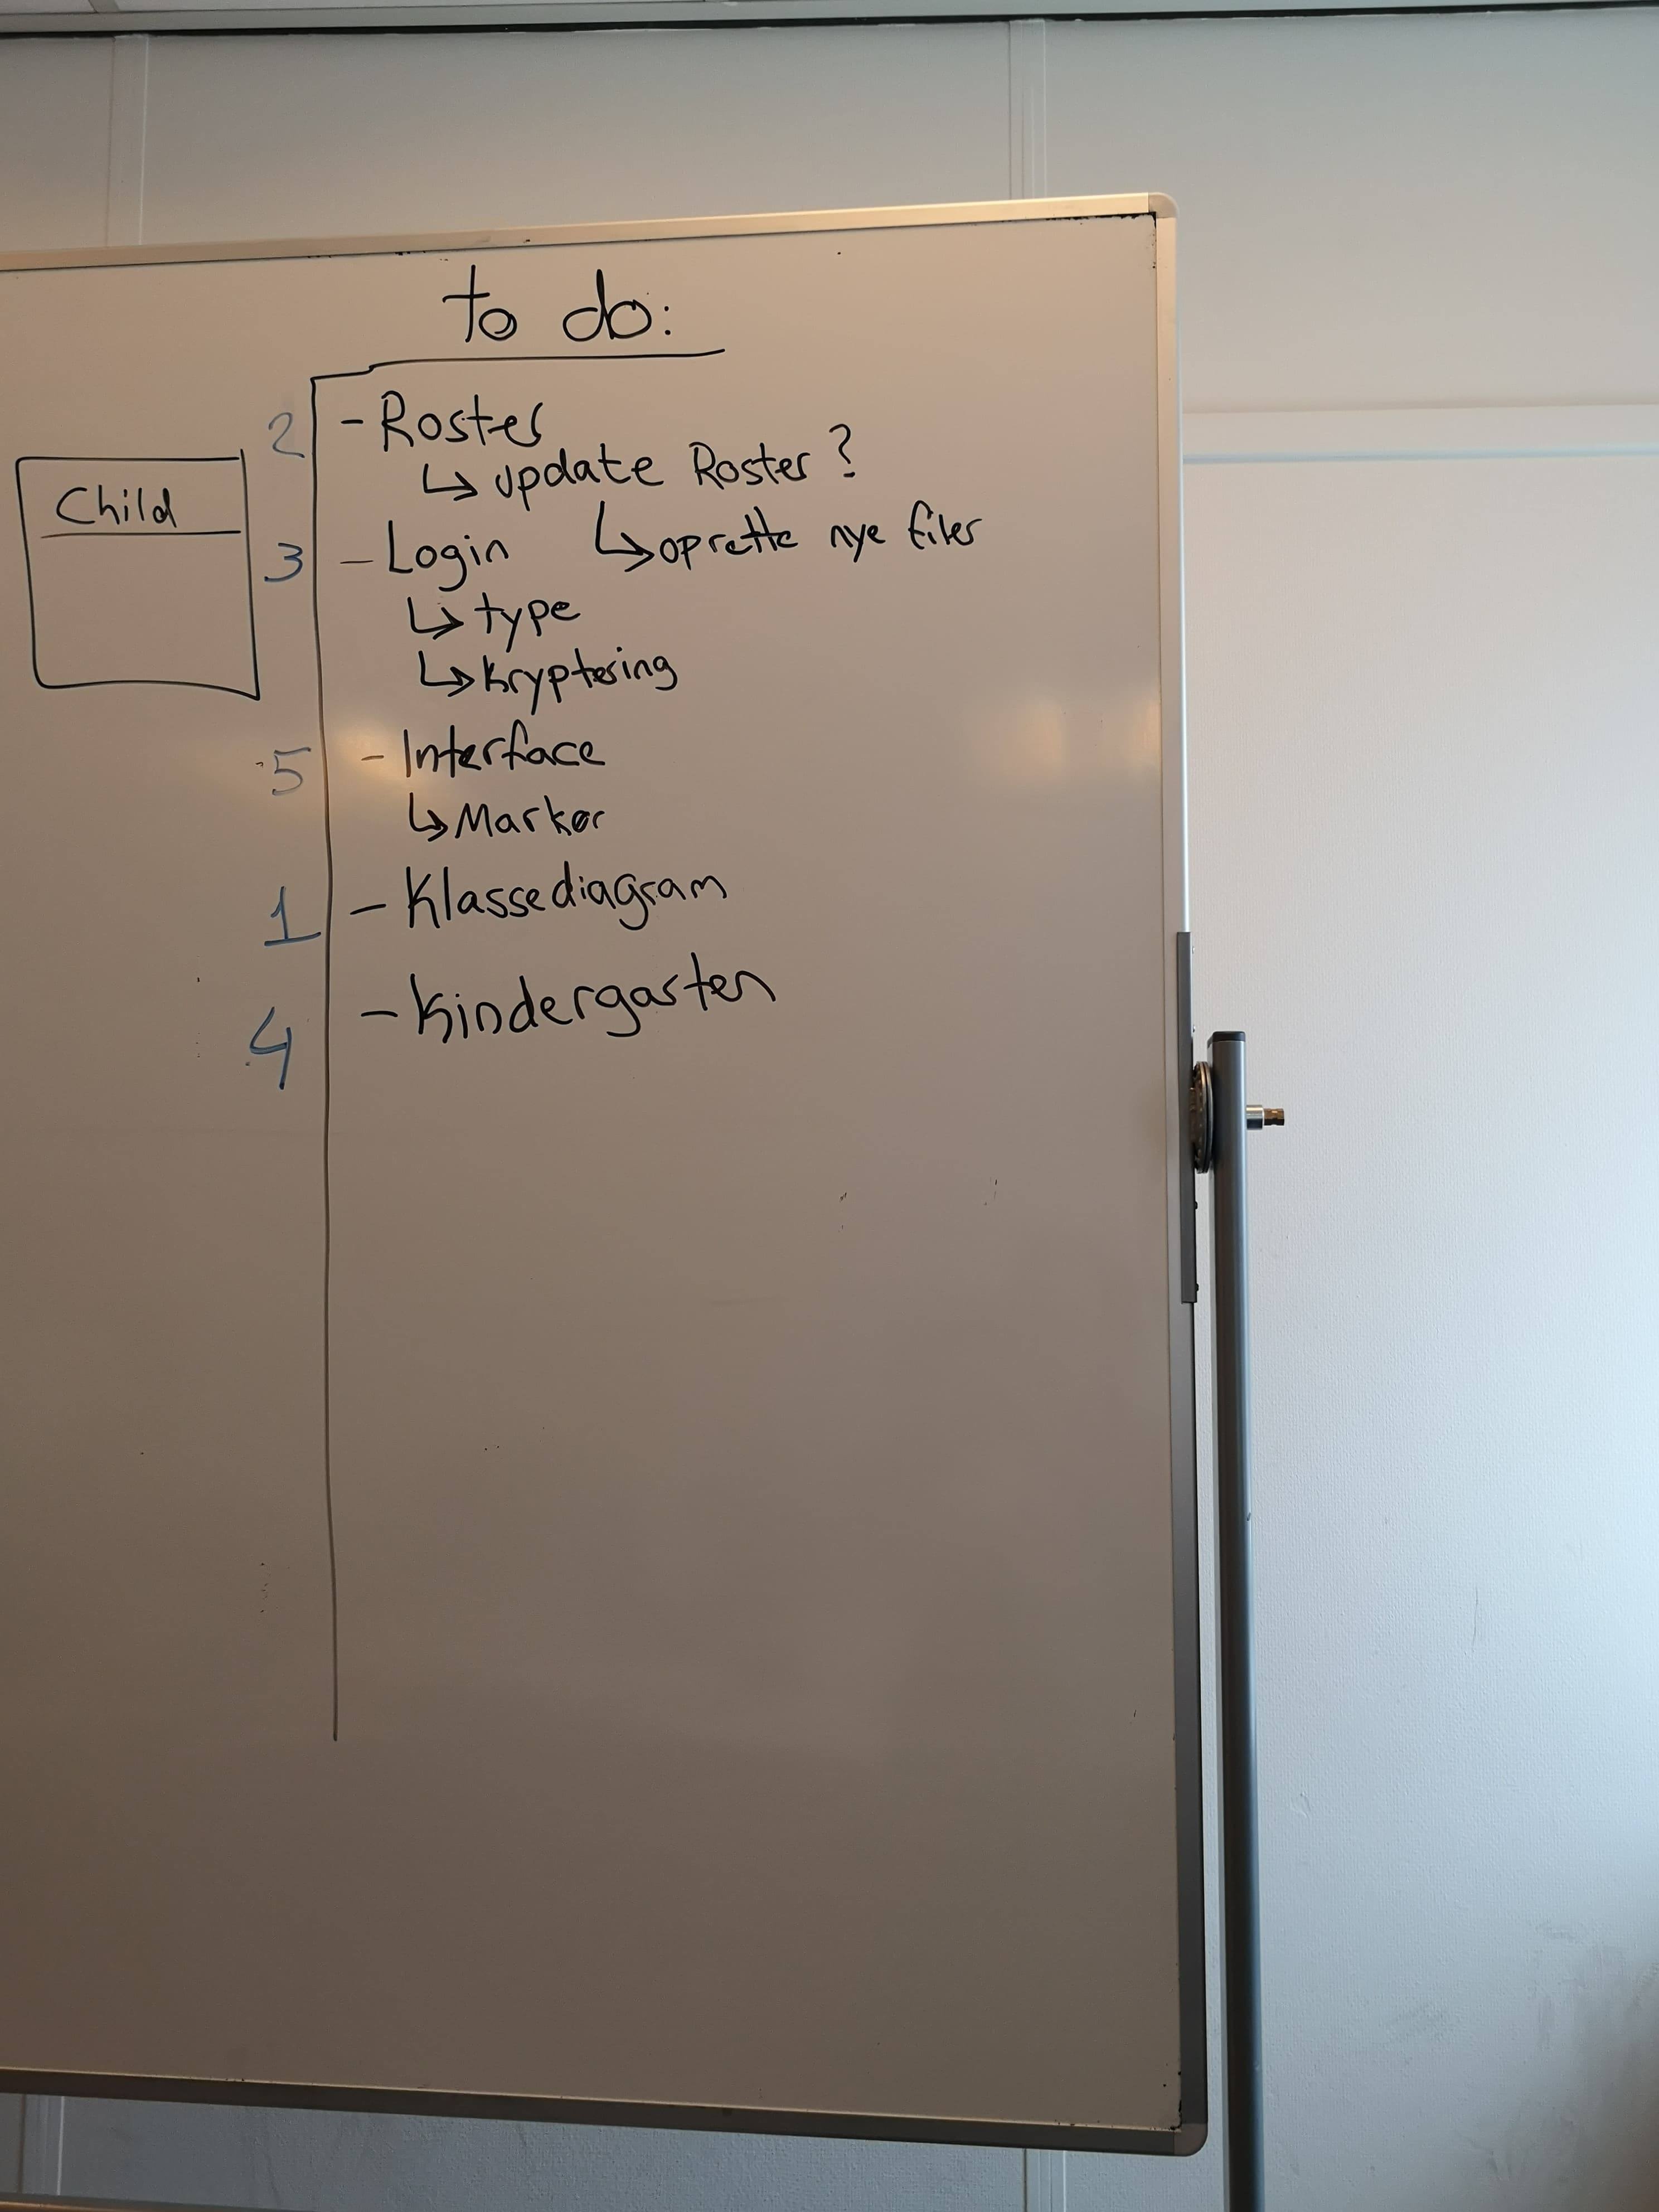 to do:
2 - Roster
↳ update Roster?
↳ oprette nye filer
Child
3 - Login
↳ type
↳ Kryptering
5 - Interface
↳ Marker
1 - Klassediagram
4 - Kindergarten